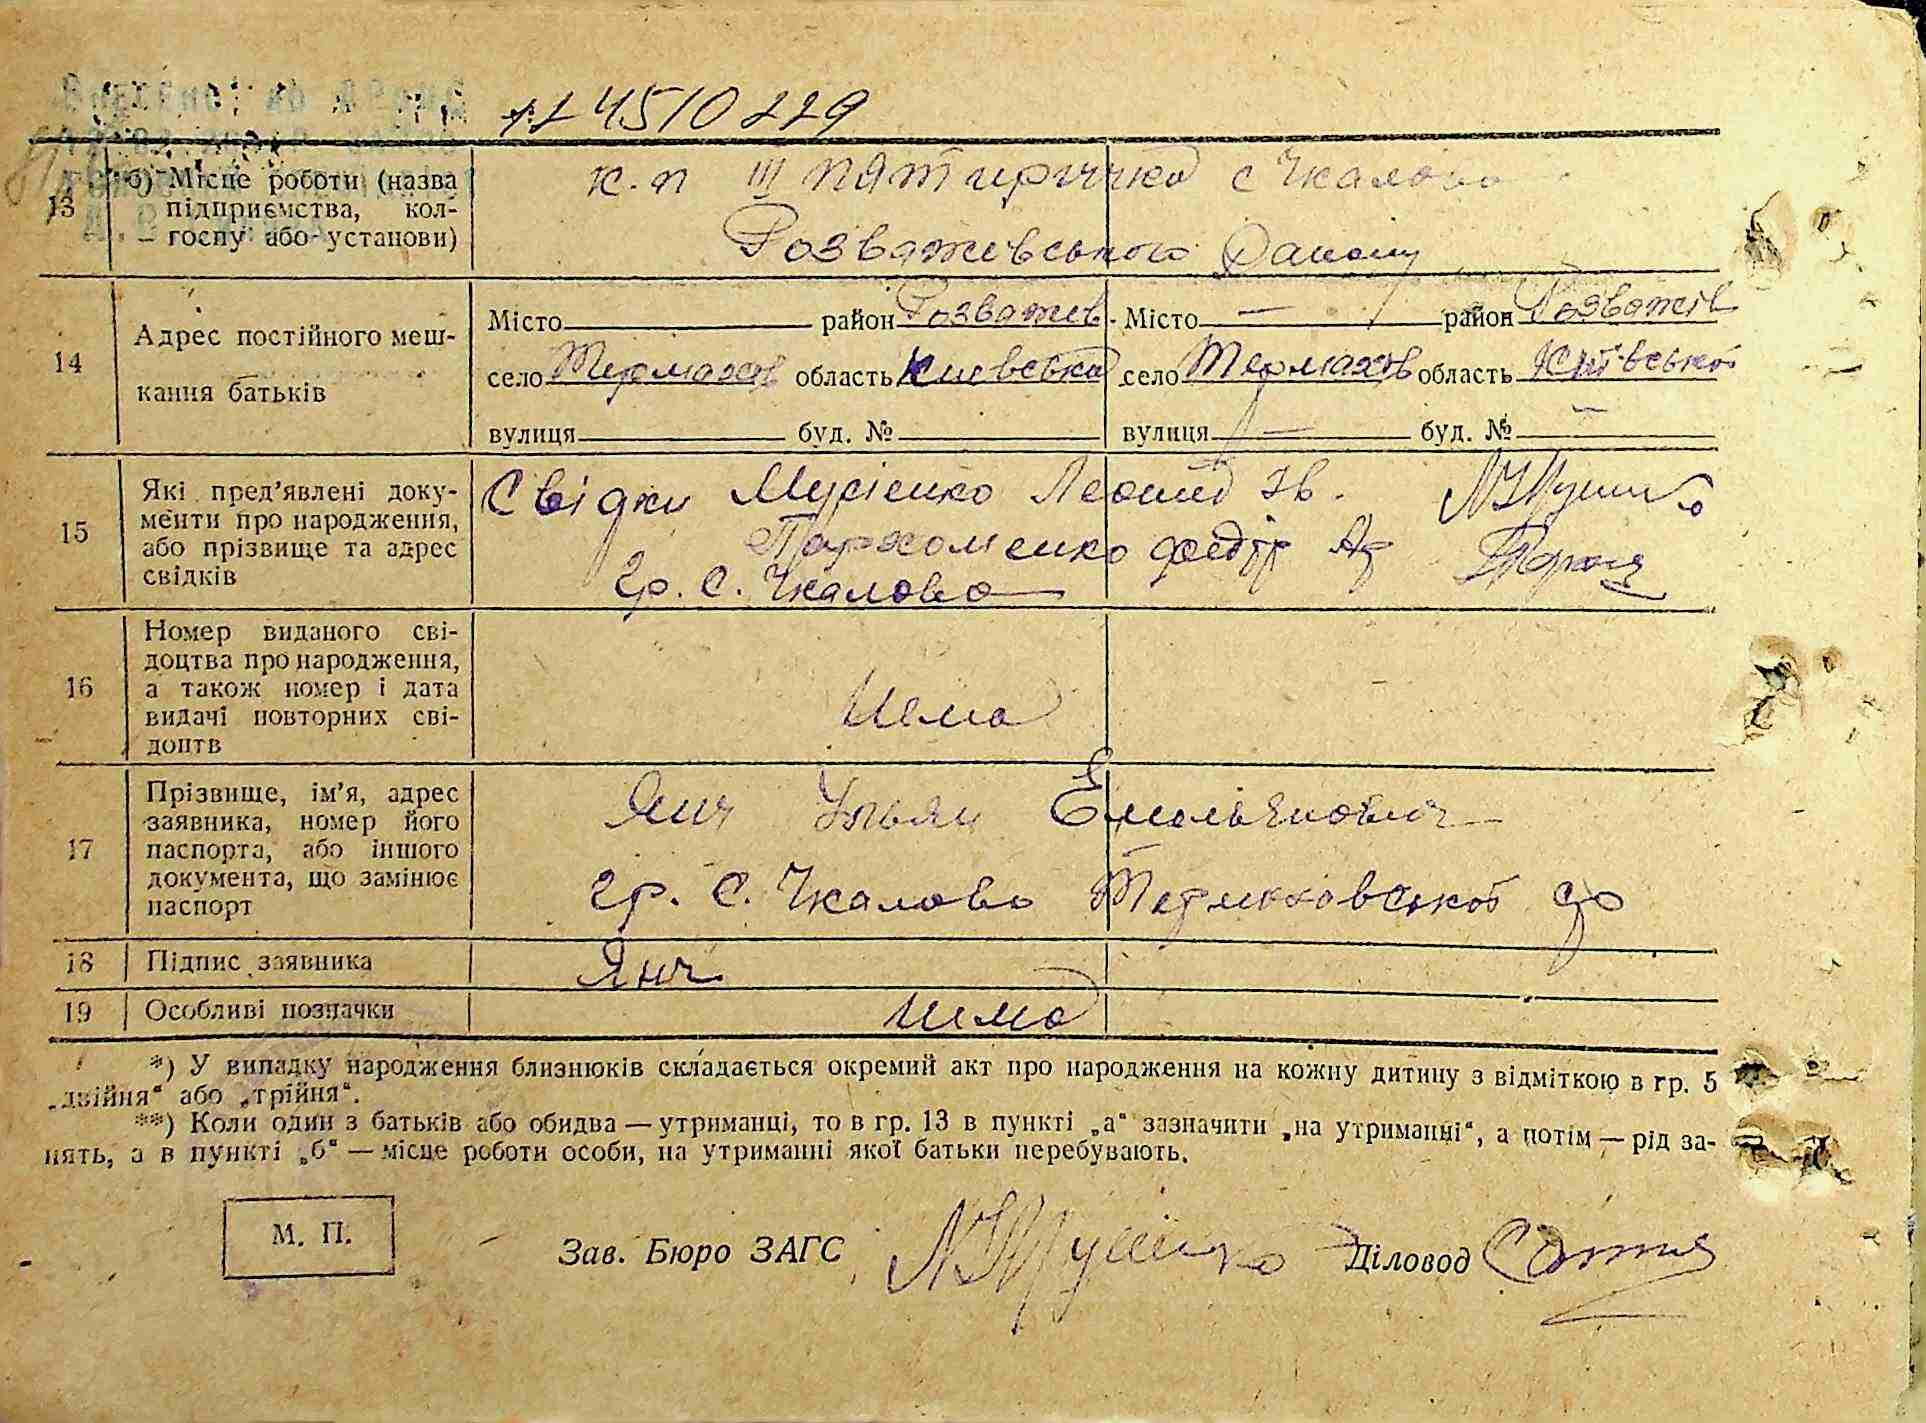 4510229
13 б) Місце роботи (назва підприємства, колгоспу або установи)
к.п III пятирічка с Чкалово
Розважевського Району
14 Адрес постійного мешкання батьків
Місто район Розважів. Місто — район Розважів
село Термахов область Київська село Термахов область Київської
вулиця буд. № вулиця — буд. № —
15 Які пред'явлені документи про народження, або прізвище та адрес свідків
Свідки Мусієнко Леонид Ів.
Пархоменко федір
Гр. С. Чкалово
16 Номер виданого свідоцтва про народження, а також номер і дата видачі повторних свідоцтв
Нема
17 Прізвище, ім'я, адрес заявника, номер його паспорта, або іншого документа, що замінює паспорт
Янч Ульян Емельянович
гр. С. Чкалово Термаховської с/р
18 Підпис заявника Янч
19 Особливі позначки нема
*) У випадку народження близнюків складається окремий акт про народження на кожну дитину з відміткою в гр. 5
„двійня“ або „трійня“.
**) Коли один з батьків або обидва — утриманці, то в гр. 13 в пункті „а“ зазначити „на утриманні“, а потім — рід за-
нять, а в пункті „б“ — місце роботи особи, на утриманні якої батьки перебувають.
М. П. Зав. Бюро ЗАГС Діловод